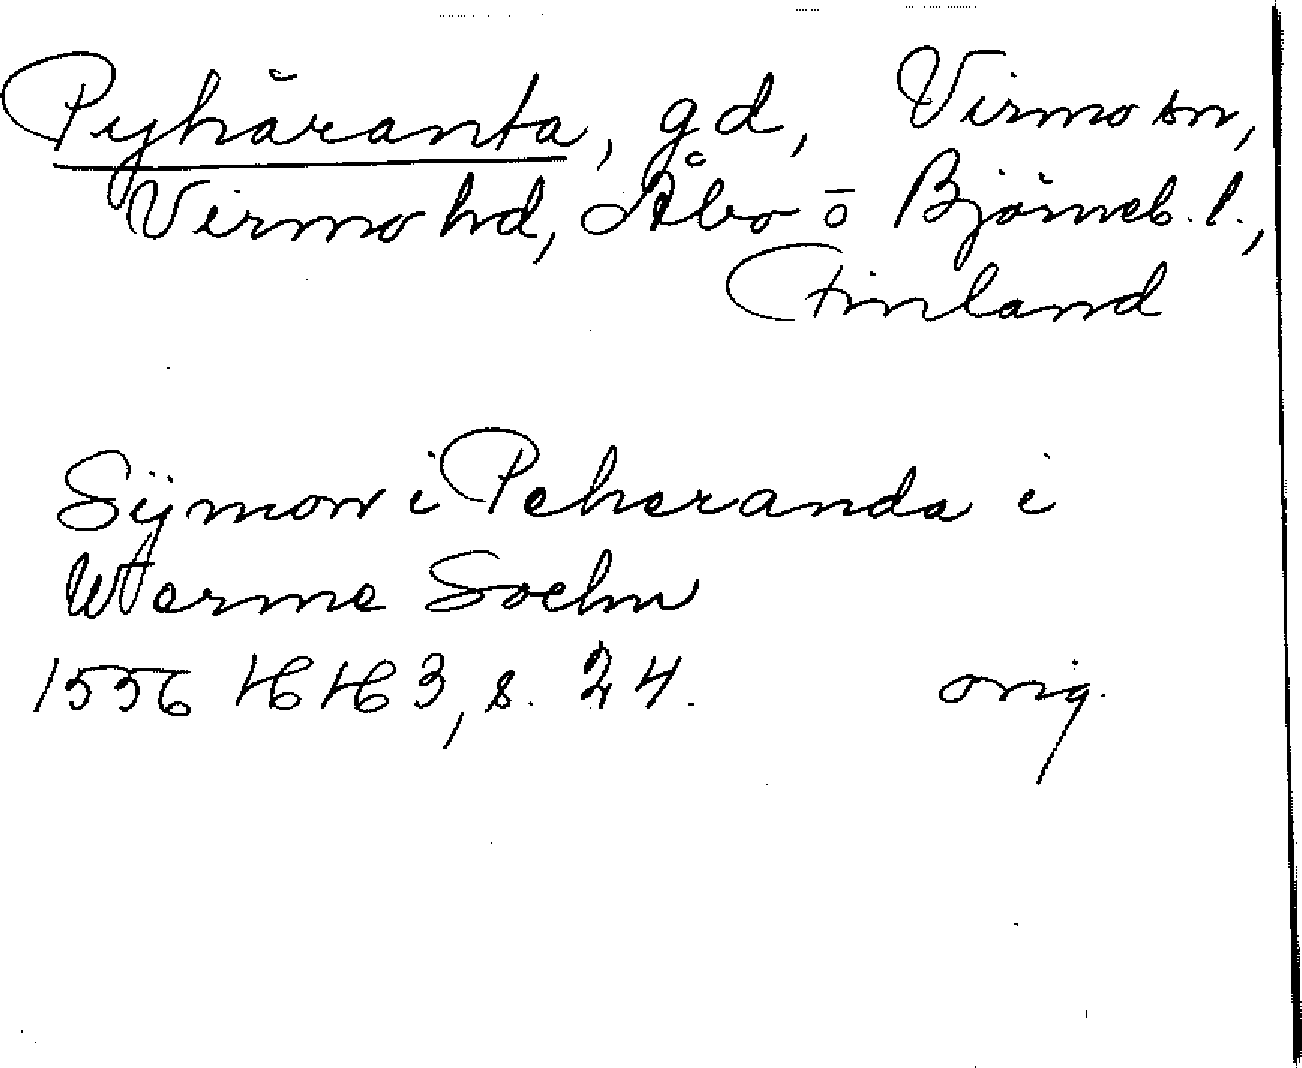 Pyhäranta, gd, Virmo sn,
Virmo hd, Åbo o Björneb. l.,
Finland
Sijmon i Peheranda i
Werme Sochn
1556 HH 3, s. 24.
orig.